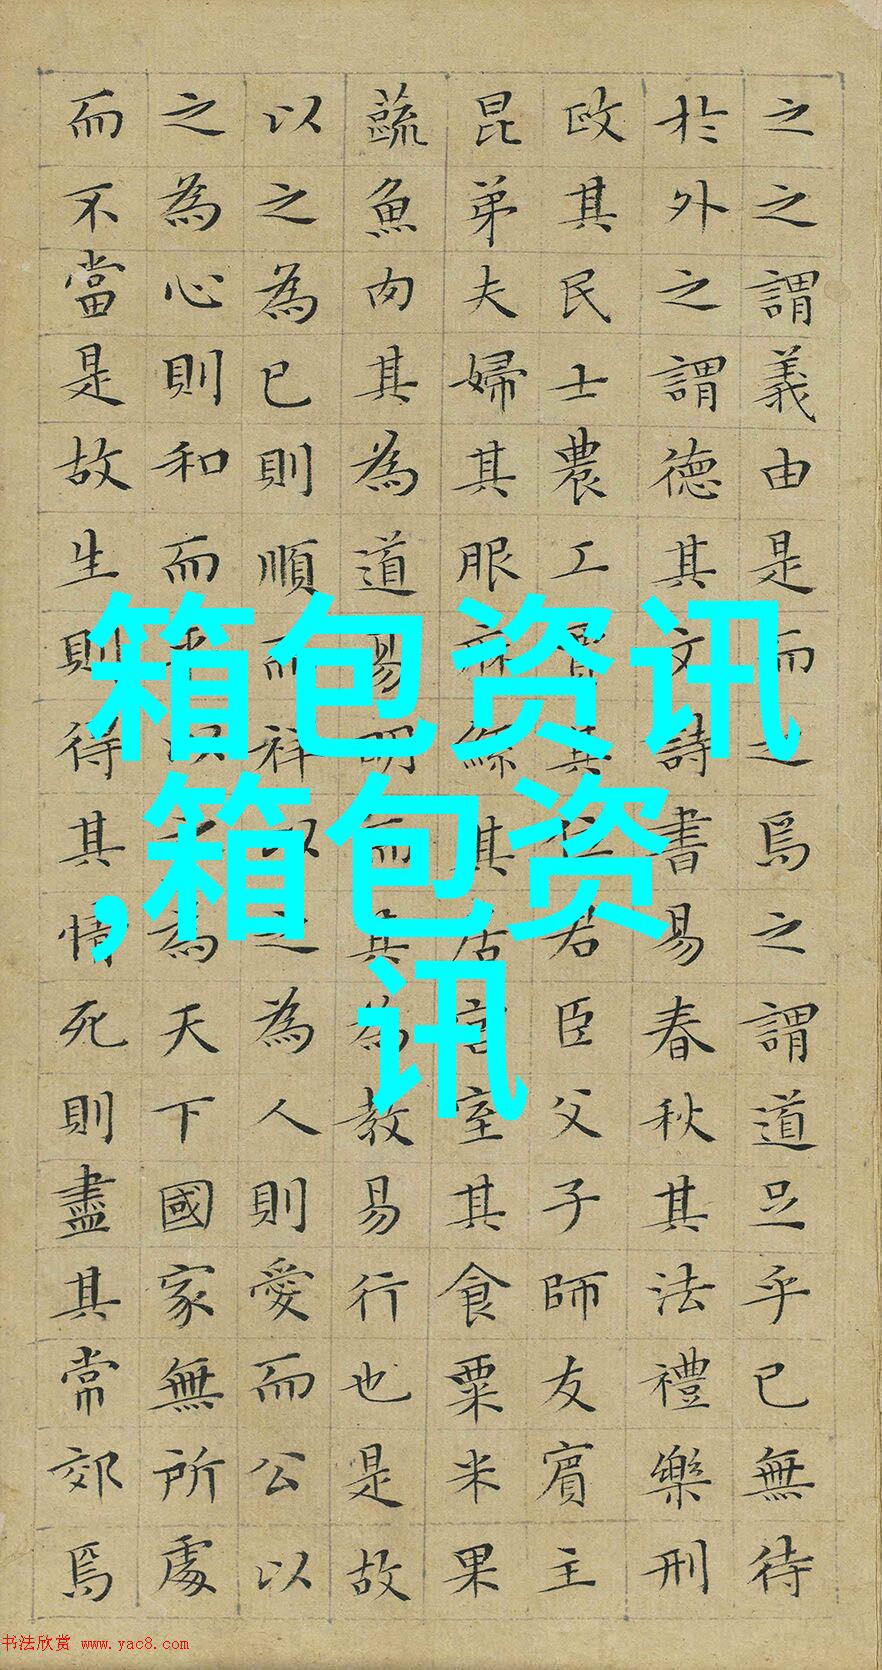 之之謂義由是而之焉之謂道足乎已無待
於外之謂德其文詩書易春秋其法禮樂刑
政其民士農工賈其位君臣父子師友賓主
昆弟夫婦其服麻絲其居宮室其食粟米果
蔬魚肉其為道易明而其為教易行也是故
以之為已則順而祥以之為人則愛而公以
之為心則和而平以之為天下國家無所處
而不當是故生則得其情死則盡其常郊焉
箱包资讯
,箱包资
讯
书法欣赏 www.yac8.com